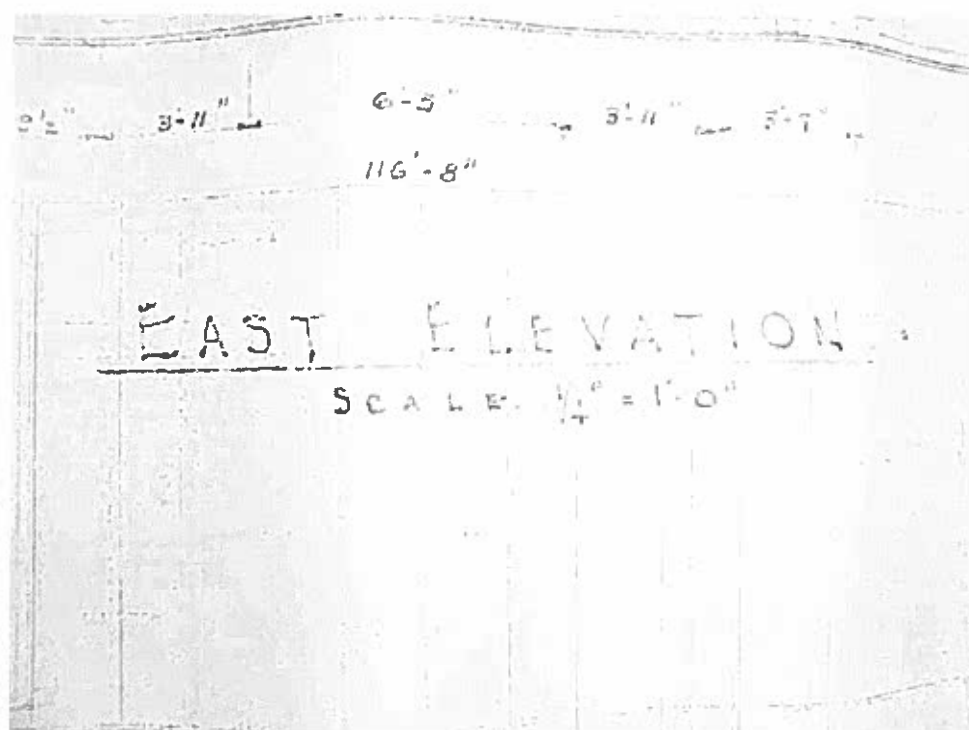 3'-11" 6'-5" 3'-11" 3'-7"
116'-8"
EAST ELEVATION.
SCALE. 1/4" = 1'-0"